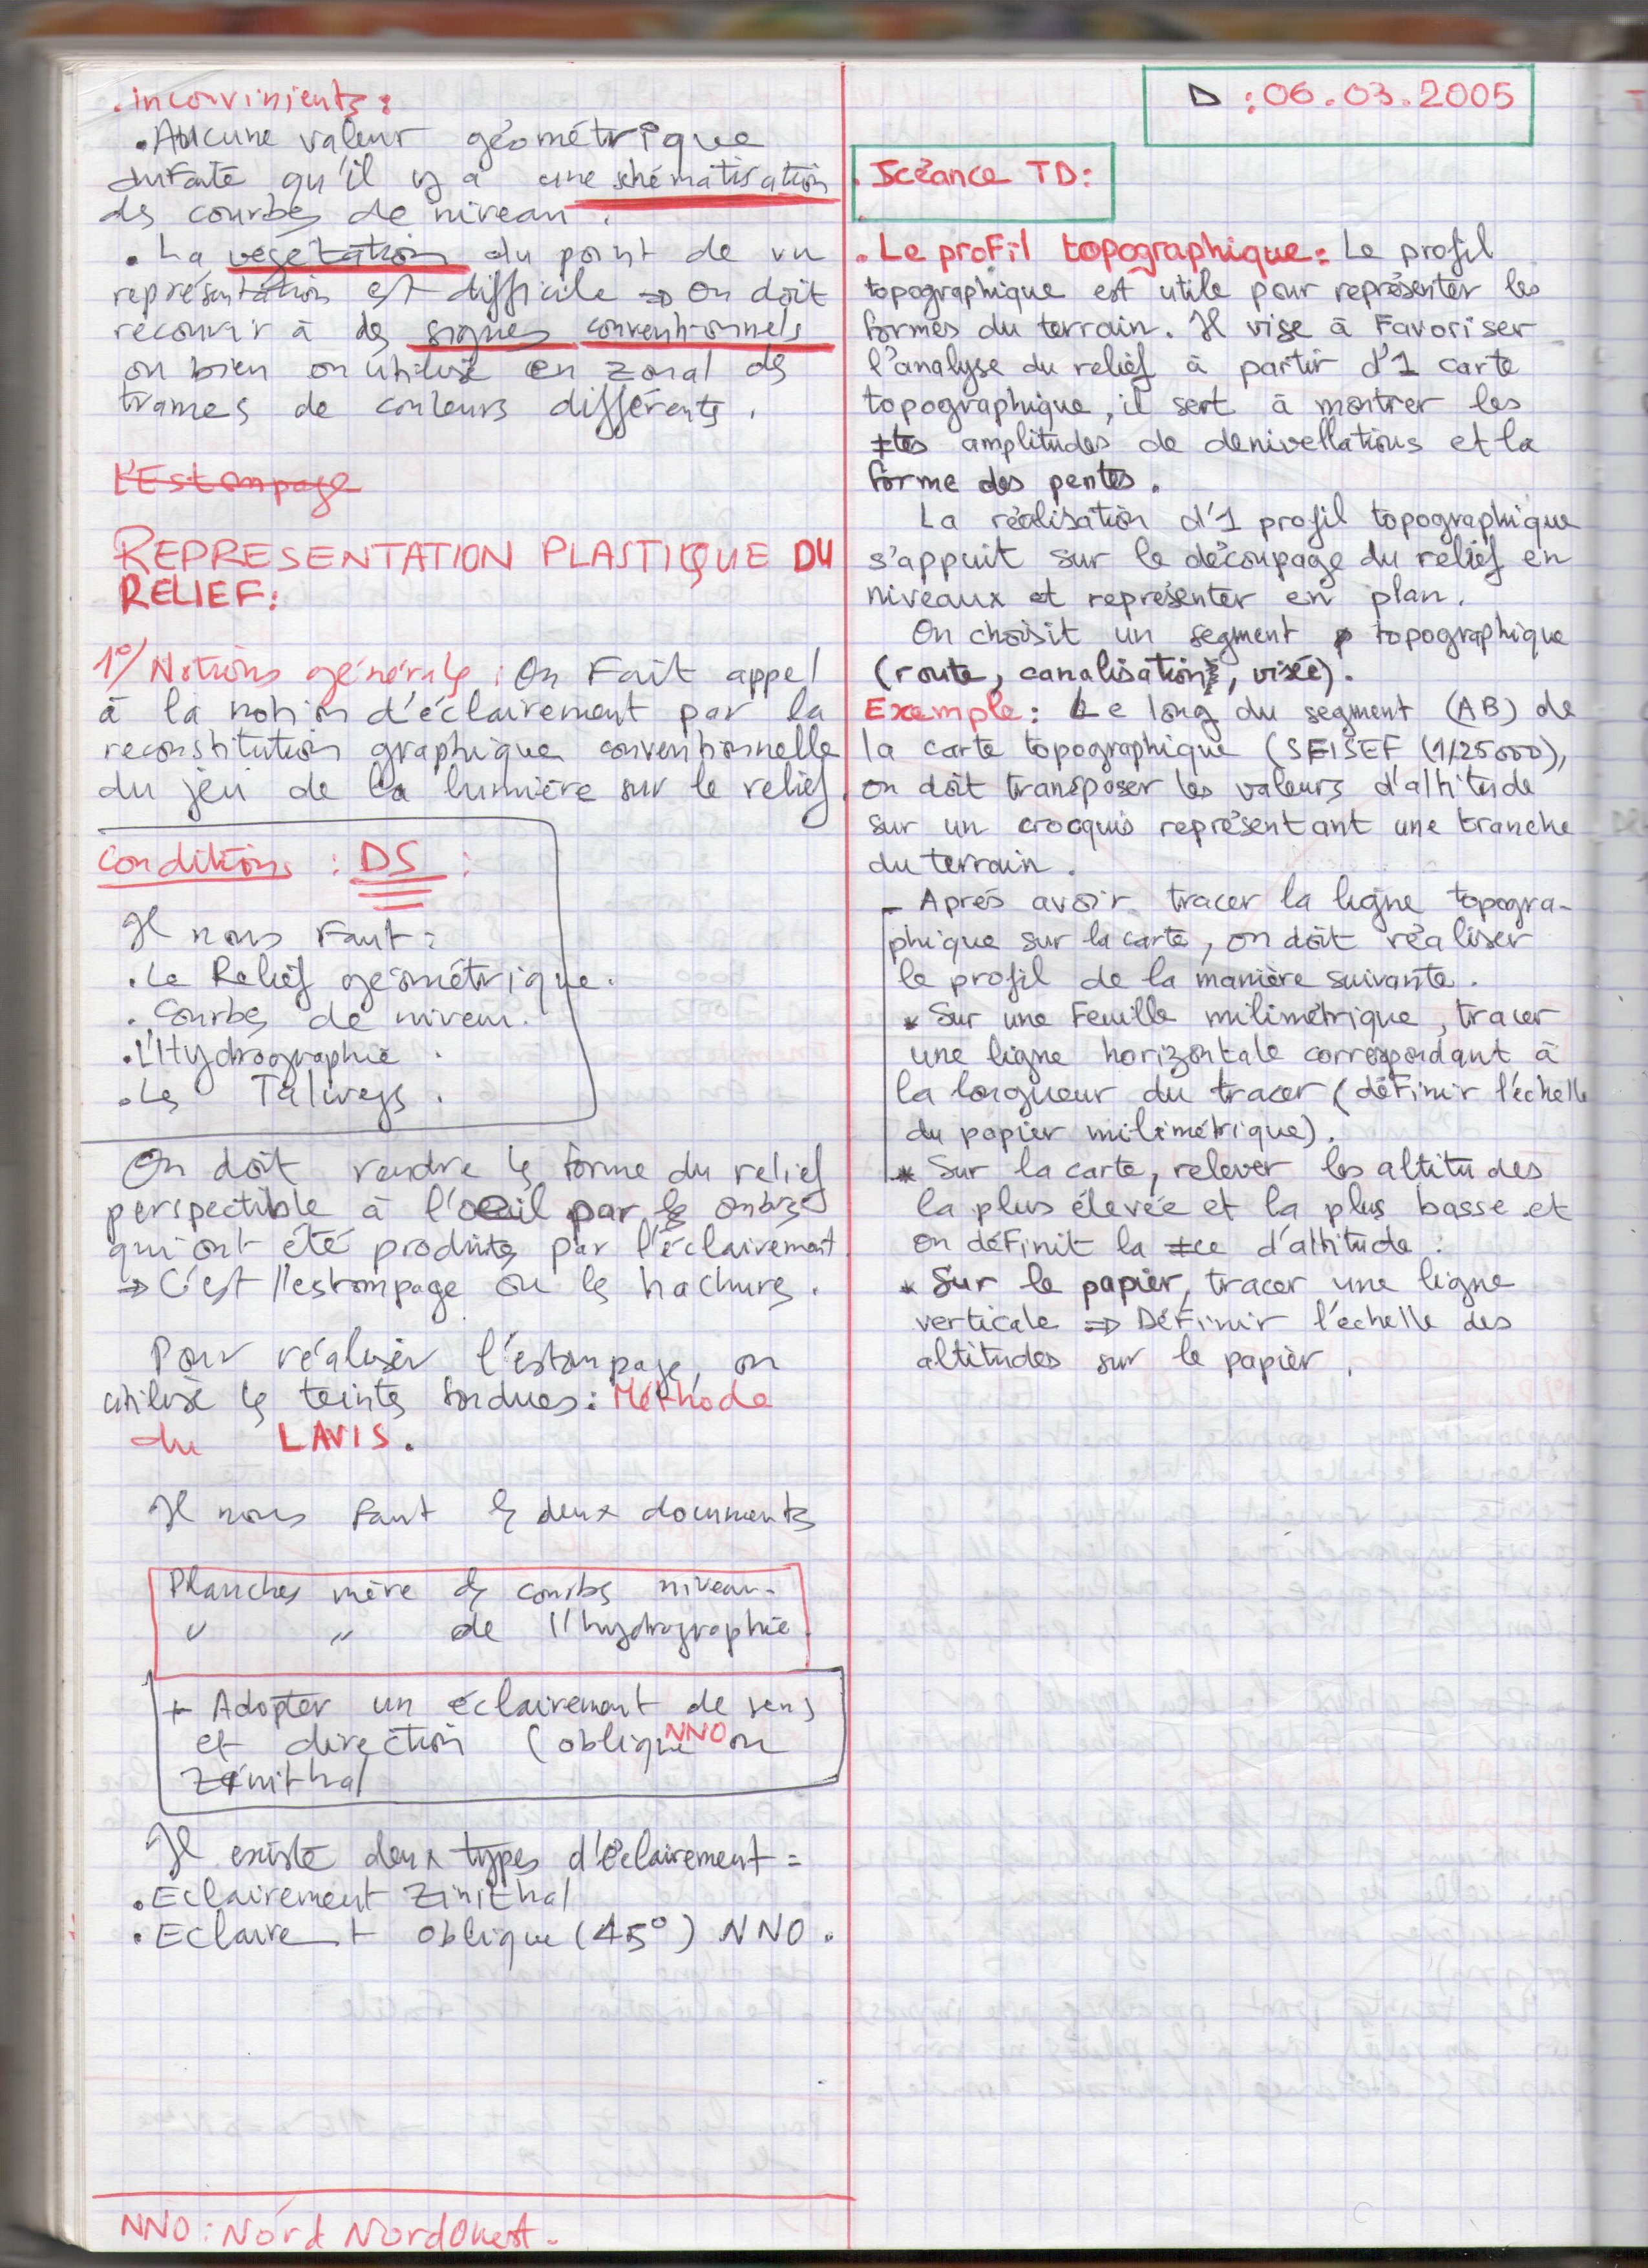 . inconvinients :
. Aucune valeur géométrique
du faite qu'il y a une schématisation
des courbes de niveau .
. La végétation du point de vu
représentation est difficile => on doit
recourir à des signes conventionnels
ou bien on utilise en zonal des
trames de couleurs différents .
L'Estompage
REPRESENTATION PLASTIQUE DU
RELIEF :
1°/ Notions générales : On Fait appel
à la notion d'éclairement par la
reconstitution graphique conventionnelle
du jeu de la lumière sur le relief.
Conditions : DS :
Il nous Faut :
. Le Relief géométrique .
. Courbes de niveau .
. L'Hydrographie .
. Les Talwegs .
On doit rendre les forme du relief
perspectible à l'oeil par les ombres
qui ont été produites par l'éclairement
=> C'est l'estompage ou les hachures .
Pour réaliser l'estompage, on
utilise les teintes fondues : Méthode
du LAVIS .
Il nous Faut les deux documents
Planches mère des courbes niveau .
" " de l'hydrographie .
+ Adopter un éclairement de sens
et direction (oblique NNO ou
Zénithal
Il existe deux types d'éclairement =
. Eclairement Zinithal
. Eclaire__t oblique (45°) NNO .
NNO : Nord NordOuest .
D : 06.03.2005
. Scéance TD :
. Le proFil topographique : Le profil
topographique est utile pour représenter les
formes du terrain. Il vise à Favoriser
l'analyse du relief à partir d'1 carte
topographique, il sert à montrer les
≠tes amplitudes de denivellations et la
forme des pentes .
La réalisation d'1 profil topographique
s'appuit sur le découpage du relief en
niveaux et représenter en plan .
On choisit un segment topographique
(route, canalisation, visée) .
Exemple : Le long du segment (AB) de
la carte topographique (SEJSEF (1/25000),
on doit transposer les valeurs d'altitude
sur un crocquis représentant une tranche
du terrain .
- Aprés avoir tracer la ligne topogra-
phique sur la carte, on doit réaliser
le profil de la manière suivante .
* Sur une Feuille milimétrique, tracer
une ligne horizontale correspondant à
la longueur du tracer (déFinir l'échelle
du papier milimétrique) .
* Sur la carte, relever les altitudes
la plus élevée et la plus basse et
on déFinit la ≠ce d'altitude :
* Sur le papier, tracer une ligne
verticale => DéFinir l'échelle des
altitudes sur le papier .